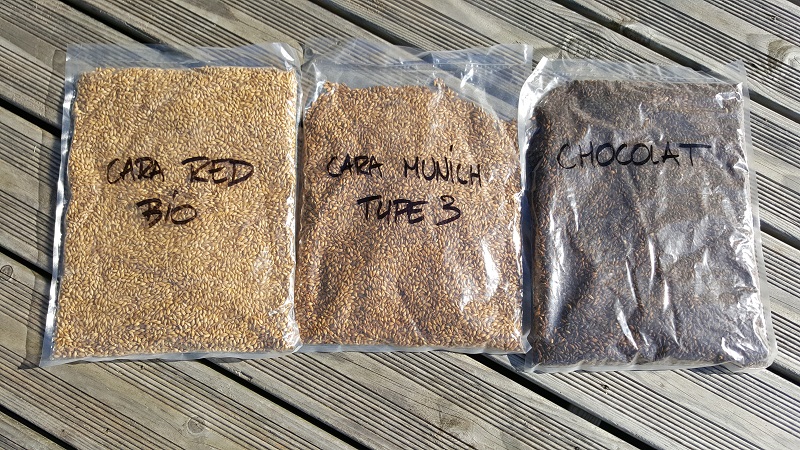 CARA RED
BIO
CARA MUNICH
TYPE 3
CHOCOLAT